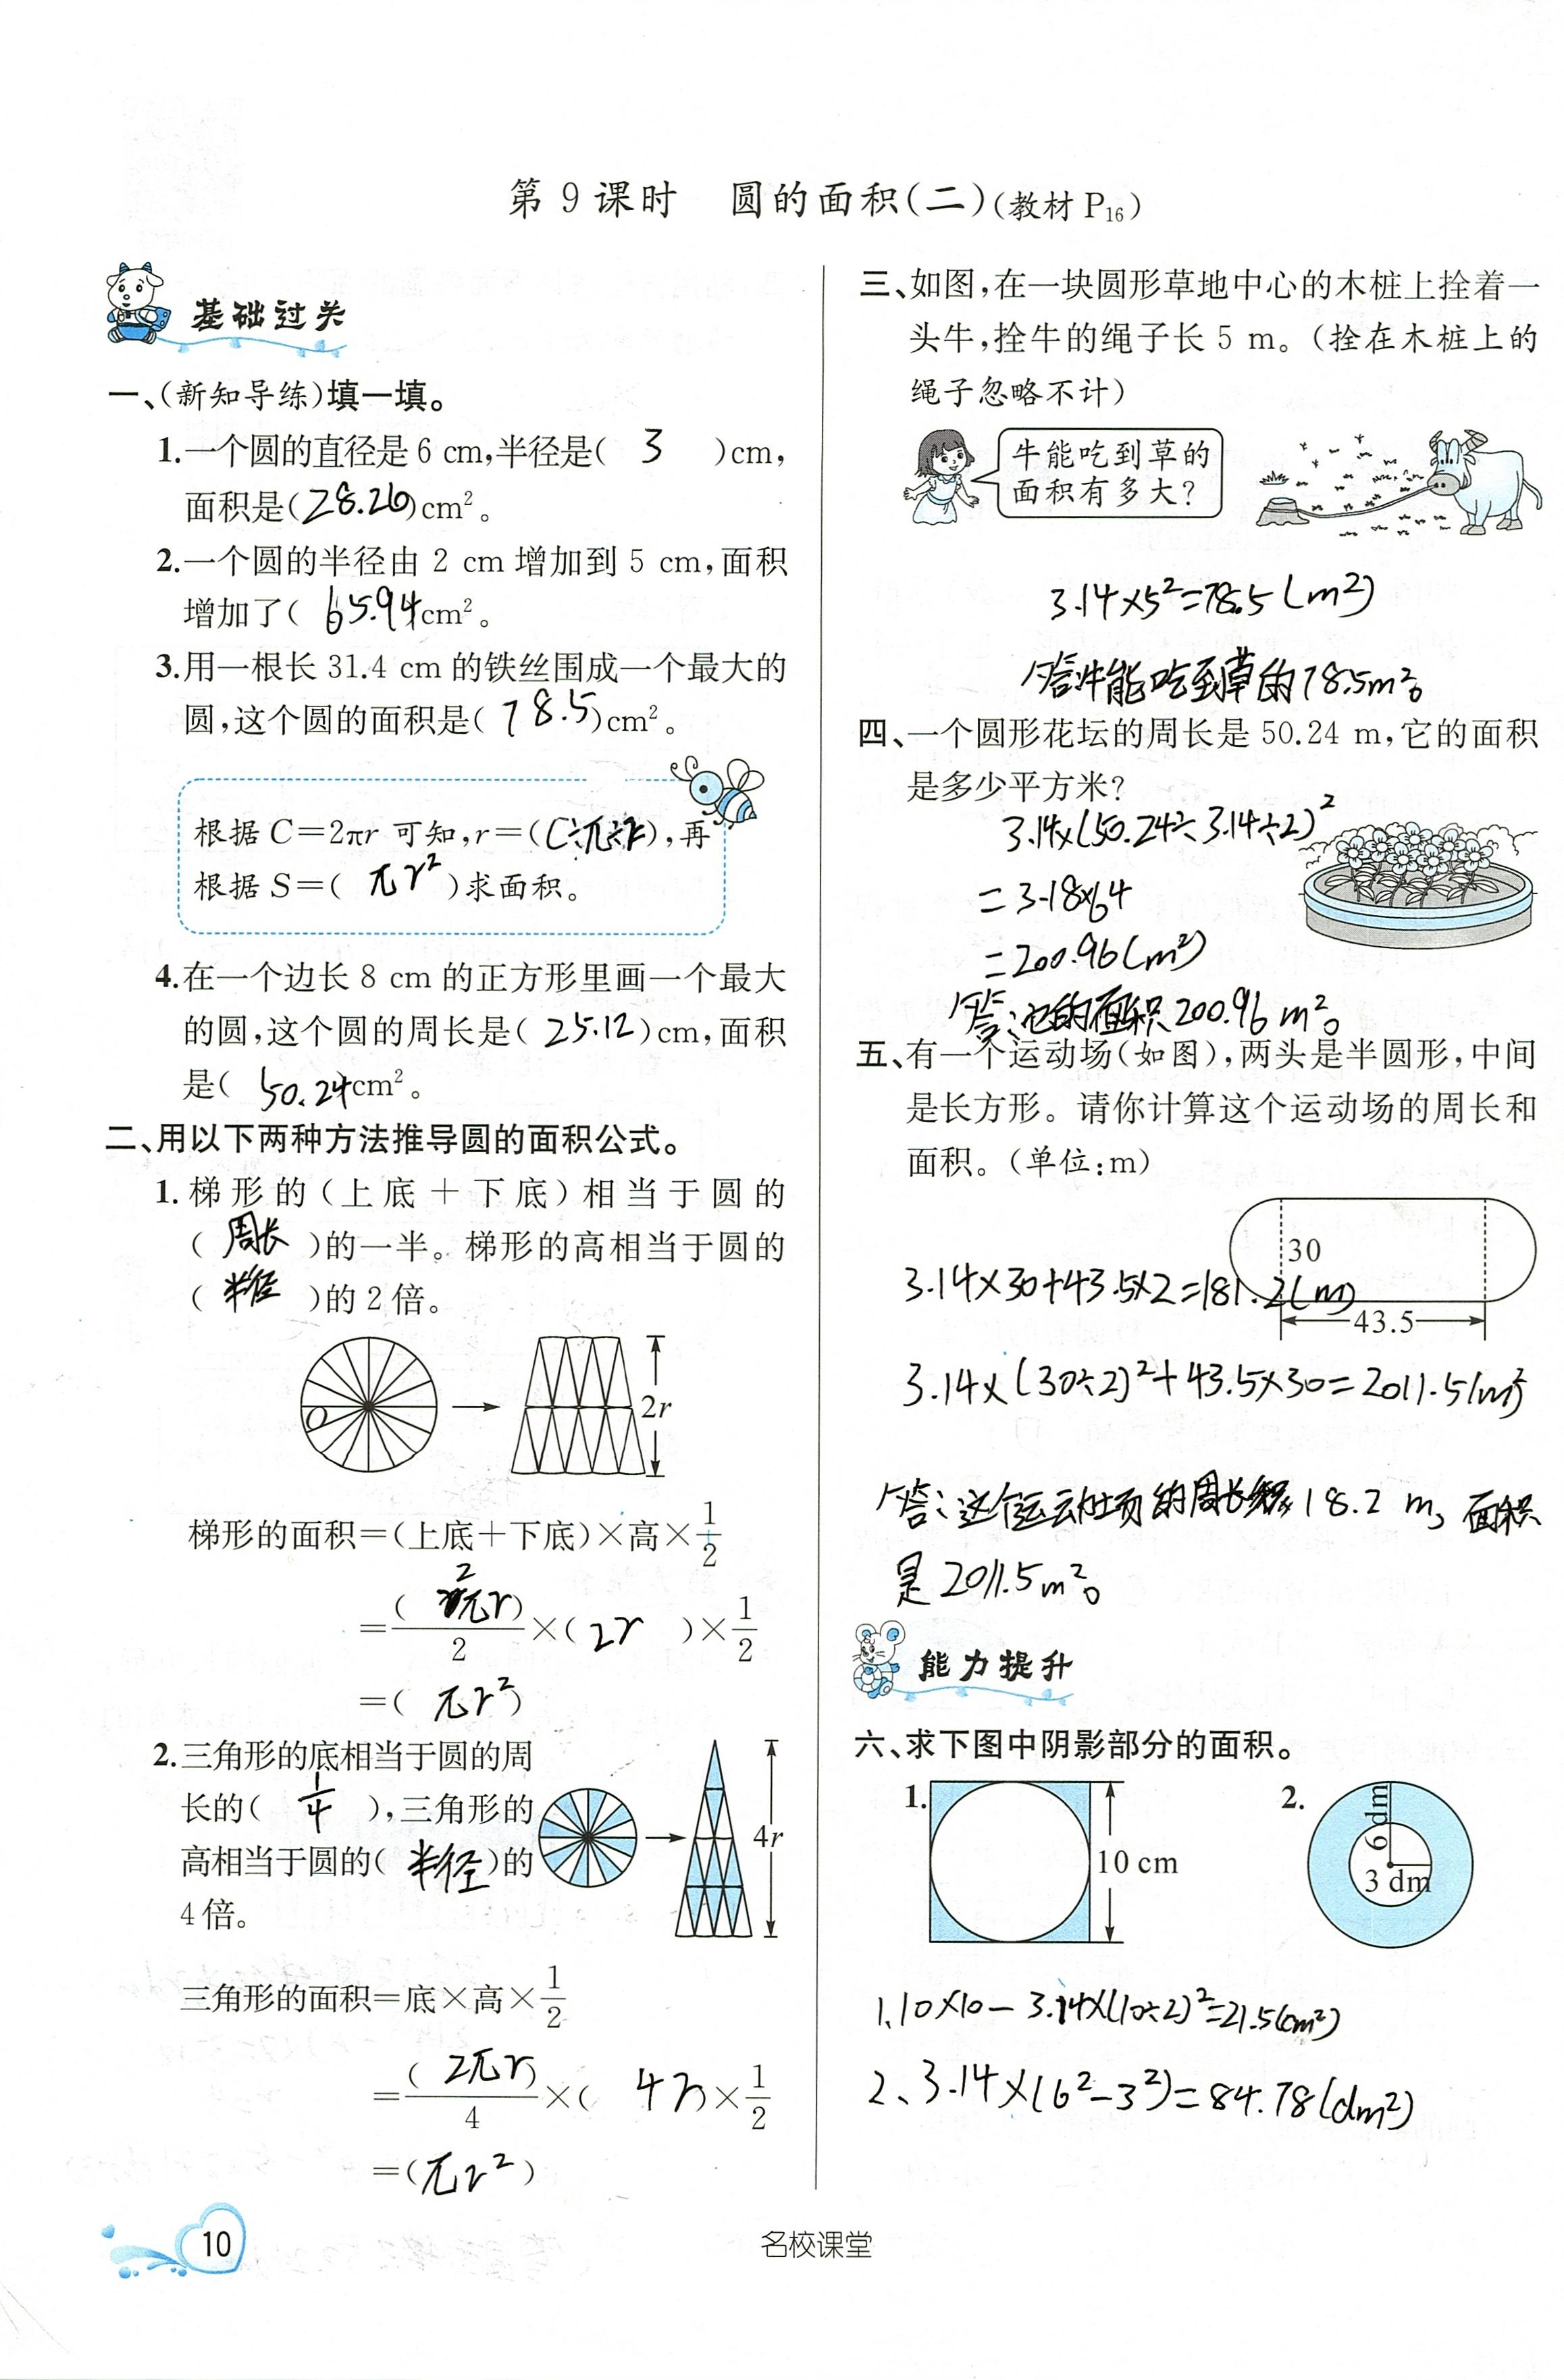 第 9 课时 圆的面积(二)(教材 P₁₆)
基础过关
一、(新知导练)填一填。
1.一个圆的直径是 6 cm,半径是( 3 )cm,
面积是(28.26)cm²。
2.一个圆的半径由 2 cm 增加到 5 cm,面积
增加了( 65.94cm²。
3.用一根长 31.4 cm 的铁丝围成一个最大的
圆,这个圆的面积是( 78.5)cm²。
根据 C=2πr 可知,r=(C÷π÷2),再
根据 S=( πr² )求面积。
4.在一个边长 8 cm 的正方形里画一个最大
的圆,这个圆的周长是( 25.12)cm,面积
是( 50.24cm²。
二、用以下两种方法推导圆的面积公式。
1.梯形的(上底+下底)相当于圆的
( 周长 )的一半。梯形的高相当于圆的
( 半径 )的 2 倍。
O
2r
梯形的面积=(上底+下底)×高×1/2
=( 2πr)/2×( 2r )×1/2
=( πr²)
2.三角形的底相当于圆的周
长的( 1/4 ),三角形的
高相当于圆的( 半径)的
4 倍。
4r
三角形的面积=底×高×1/2
=( 2πr)/4×( 4r)×1/2
=(πr²)
三、如图,在一块圆形草地中心的木桩上拴着一
头牛,拴牛的绳子长 5 m。(拴在木桩上的
绳子忽略不计)
牛能吃到草的
面积有多大?
3.14×5²=78.5(m²)
答:牛能吃到草的78.5m²。
四、一个圆形花坛的周长是 50.24 m,它的面积
是多少平方米?
3.14×(50.24÷3.14÷2)²
=3.18×64
=200.96(m²)
答:它的面积200.96 m²。
五、有一个运动场(如图),两头是半圆形,中间
是长方形。请你计算这个运动场的周长和
面积。(单位:m)
30
43.5
3.14×30+43.5×2=181.2(m)
3.14×(30÷2)²+43.5×30=2011.5(m²)
答:这个运动场的周长 18.2 m, 面积
是 2011.5m²。
能力提升
六、求下图中阴影部分的面积。
1.
10 cm
2.
6 dm
3 dm
1、10×10-3.14×(10÷2)²=21.5(cm²)
2、3.14×(6²-3²)=84.78(dm²)
10
名校课堂